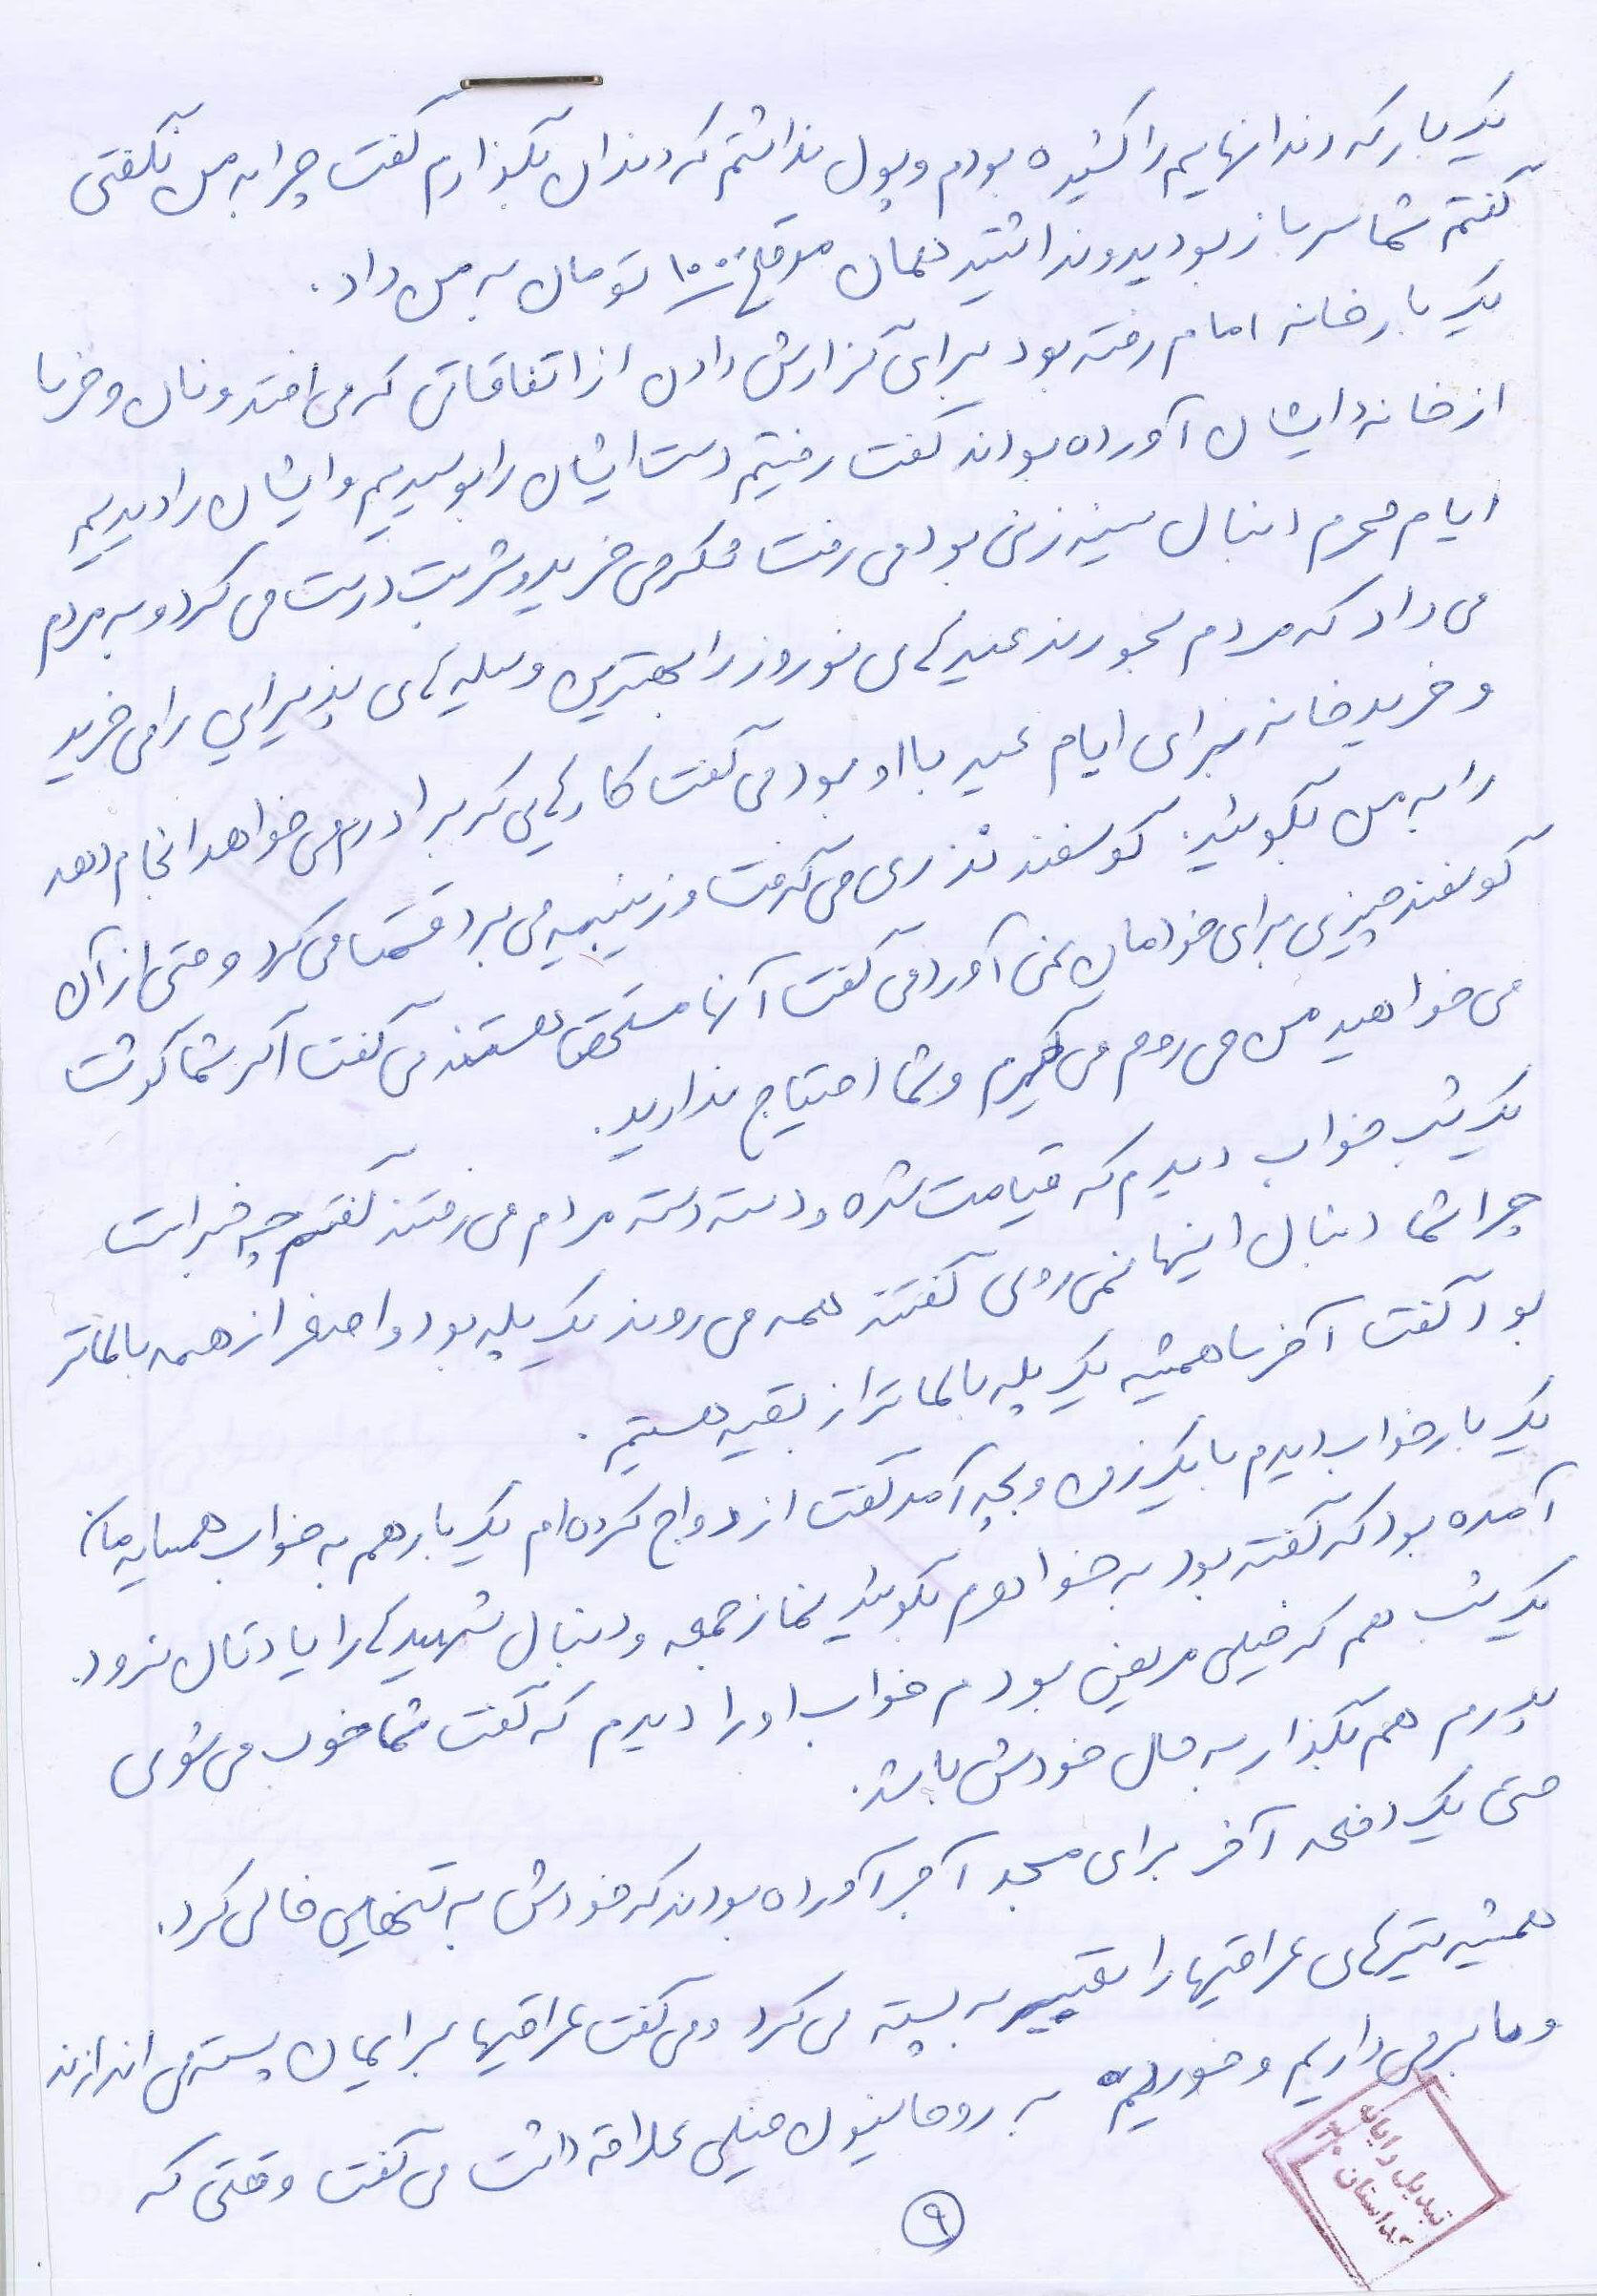 یک بار که دندانهایم را کشیده بودم و پول نداشتم که دندان بگذارم گفت چرا به من نگفتی
گفتم شما سرباز بودید و نداشتید همان موقع ۱۰۰۰ تومان به من داد.
یک بار خانه امام رفته بود برای گزارش دادن از اتفاقاتی که می افتد و نان و خرما
از خانه ایشان آورده بودند گفت رفتیم دست ایشان را بوسیدیم و ایشان را دیدیم
ایام محرم دنبال سینه زنی بود می رفت شکر می خرید و شربت درست می کرد و به مردم
می داد که مردم بخورند عیدهای نوروز را بهترین وسیله های پذیرایی را می خرید
و خرید خانه برای ایام عید با او بود می گفت کارهایی که برادرم می خواهد انجام دهد
را به من بگوئید. گوسفند نذری می گرفت و زینبیه می برد قسمت می کرد و حتی از آن
گوسفند چیزی برای خودمان نمی آورد می گفت آنها مستحق هستند می گفت اگر شما گوشت
می خواهید من می روم می گیرم و شما احتیاج ندارید.
یک شب خواب دیدم که قیامت شده و دسته دسته مردم می رفتند گفتم چه خبر است
چرا شما دنبال اینها نمی روی گفتند همه می روند یک پله بود و اصغر از همه بالاتر
بود گفت آخر ما همیشه یک پله بالاتر از بقیه هستیم.
یک بار خواب دیدم با یک زن و بچه آمد گفت ازدواج کرده ام یک بار هم به خواب همسایه مان
آمده بود که گفته بود به خواهرم بگوئید نماز جمعه و دنبال شهیدها را یادتان نرود.
یک شب هم که خیلی مریض بودم خواب او را دیدم که گفت شما خوب می شوی
پدرم هم بگذار به حال خودش باشد.
حتی یک دفعه آخر برای مسجد آجر آورده بودند که خودش به تنهایی خالی کرد.
همیشه تیرهای عراقیها را تعبیر به پسته می کرد و می گفت عراقیها برایمان پسته می اندازند
و ما بر می داریم و خوردیم به روحانیون خیلی علاقه داشت می گفت وقتی که
۹
تبدیل رایانه